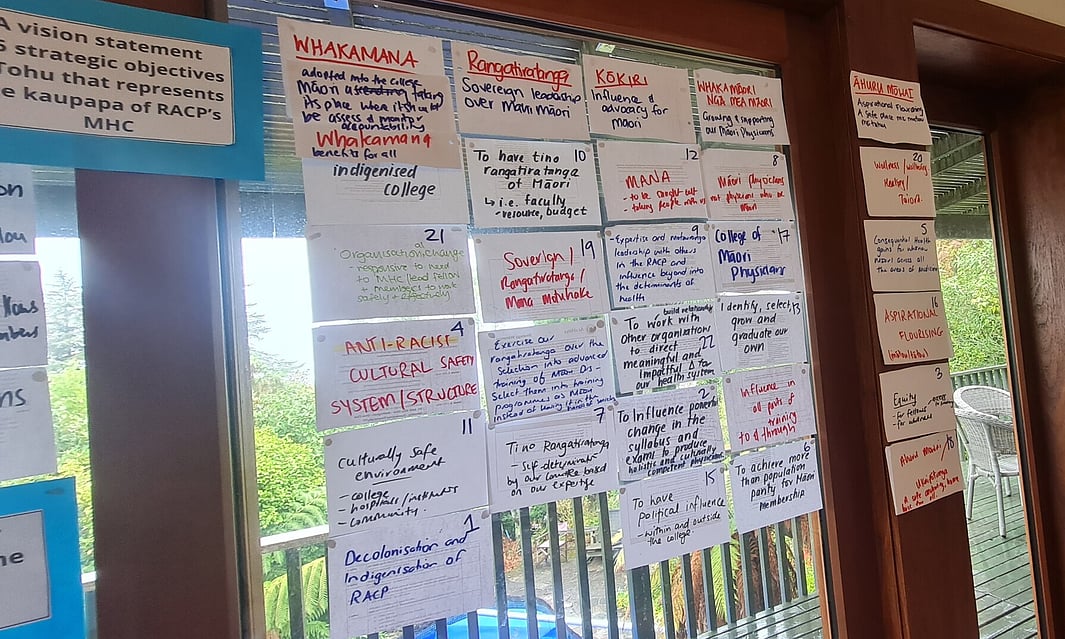 A vision statement
5 strategic objectives
Tohu that represents
e kaupapa of RACP's
MHC
on
lows
mbers
ns
he
WHAKAMANA
adopted into the college
Māori taking
its place when it should
be assess & monitor
accountability
Whakamana
benefits for all
indigenised
college
21
Organisational change
- responsive to need
to MHC/lead fellow
+ members to work
safely + effectively
4
ANTI-RACIST
CULTURAL SAFETY
SYSTEM/STRUCTURE
11
Culturally safe
environment
- college
- hospitals/institutes
- community.
1
Decolonisation and
Indigenisation of
RACP
Rangatiratanga
Sovereign leadership
over Māui Māori
10
To have tino
rangatiratanga
of Māori
↳ i.e. faculty
- resource, budget
19
Sovereign/
Rangatiratanga/
Mana motuhake
Exercise our
rangatiratanga over the
Selection into advanced
training of Māori Drs -
Select them into training
programmes as MĀORI
instead of leaving it in the
7
Tino Rangatiratanga
- Self-determination
by our
on our expertise
KŌKIRI
Influence &
advocacy for
māori
12
MANA
- to be sought out
- taking people with us
9
- Expertise and
leadership with others
in the RACP and
influence beyond into
the determinants of
health
build relationship
To work with
Other organisations
to direct 22
meaningful and
impactful Δ for
our health system
2
To Influence powerful
change in the
syllabus and
exams to produce
holistic and culturally
competent physicians
15
To have
Political influence
- within and outside
the college.
WHAKAMĀORI
NGĀ MEA MĀORI
Growing & supporting
our Māori Physicians
8
Māori physicians
not physicians who are
Māori
17
College of
Māori
Physicians
13
Identify, select,
grow and
graduate our
own
Influence in
all parts of
training
to & through
6
To achieve more
than population
parity for Māori
Membership
ĀHURU MŌWAI
Aspirational Flourishing
A safe place
20
Wellness/wellbeing
Healing/
Toiora.
5
Consequential Health
gains for whānau
Māori across all
the areas of medicine
16
ASPIRATIONAL
FLOURISHING
3
Equity
- for fellows
- for
18
Āhuru Mōwai/